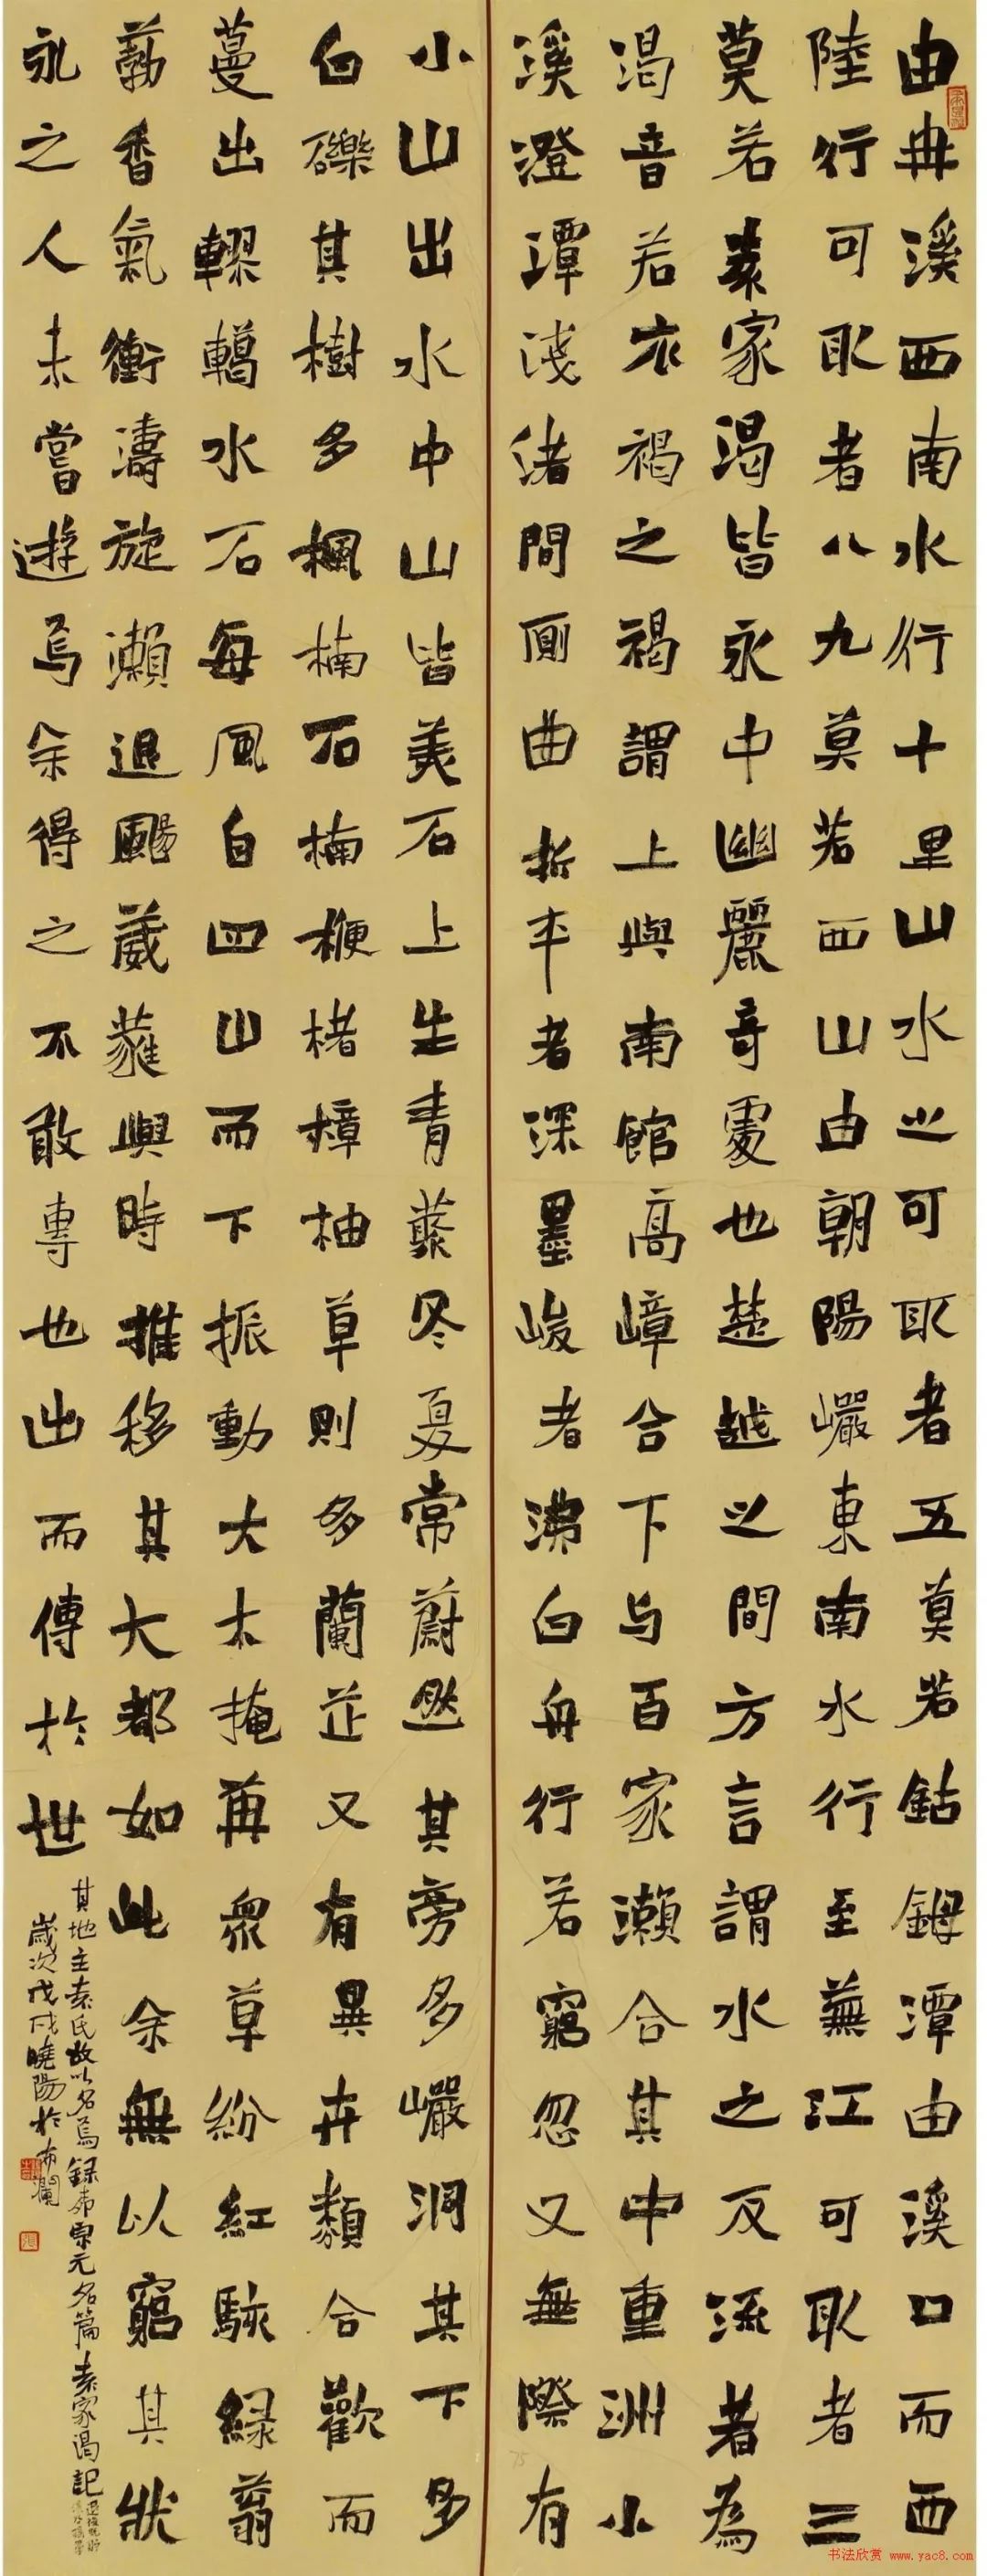 由冉溪西南水行十里山水之可取者五莫若鈷鉧潭由溪口而西
陸行可取者八九莫若西山由朝陽巖東南水行至蕪江可取者三
莫若袁家渴皆永中幽麗奇處也楚越之間方言謂水之反流者為
渴音若衣褐之褐謂上與南館高嶂合下与百家瀨合其中重洲小
溪澄潭淺渚間廁曲折平者深墨峻者沸白舟行若窮忽又無際有
小山出水中山皆美石上生青藂冬夏常蔚然其旁多巖洞其下多
白礫其樹多楓楠石楠楩楮樟柚草則多蘭芷又有異卉類合歡而
蔓出轇轕水石每風自四山而下振動大木掩苒衆草紛紅駭綠蓊
葧香氣衝濤旋瀨退颺葳蕤與時推移其大都如此余無以窮其狀
永之人未嘗遊焉余得之不敢專也出而傳於世
其地主袁氏故以名焉錄柳宗元名篇袁家渴記
歲次戊戌曉陽於布瀾
书法欣赏 www.yac8.com